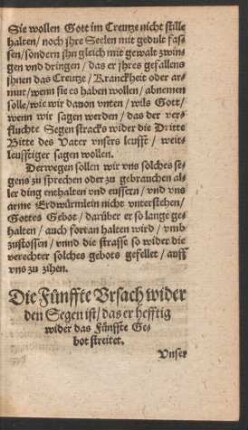 Sie wollen Gott im Creutze nicht stille
halten / noch jhre Seelen mit gedult fas-
sen / sondern jhn gleich mit gewalt zwin-
gen vnd dringen / das er jhres gefallens
jhnen das Creutze / Kranckheit oder ar-
mut / wenn sie es haben wollen / abnemen
solle / wie wir dauon vnten / wils Gott /
wenn wir sagen werden / das der ver-
fluchte Segen stracks wider die Dritte
Bitte des Vater vnsers leufft / weit-
leufftiger sagen wollen.
Derwegen sollen wir vns solches se-
gens zu sprechen oder zu gebrauchen al-
ler ding enthalten vnd eussern / vnd vns
arme Erdwürmlein nicht vnterstehen /
Gottes Gebot / darüber er so lange ge-
halten / auch fortan halten wird / vmb
zustossen / vnnd die straffe so wider die
verechter solches gebots gesellet / auff
vns zu zihen.
Die Fünffte Vrsach wider
den Segen ist / das er hefftig
wider das Fünffte Ge-
bot streitet.
Vnser